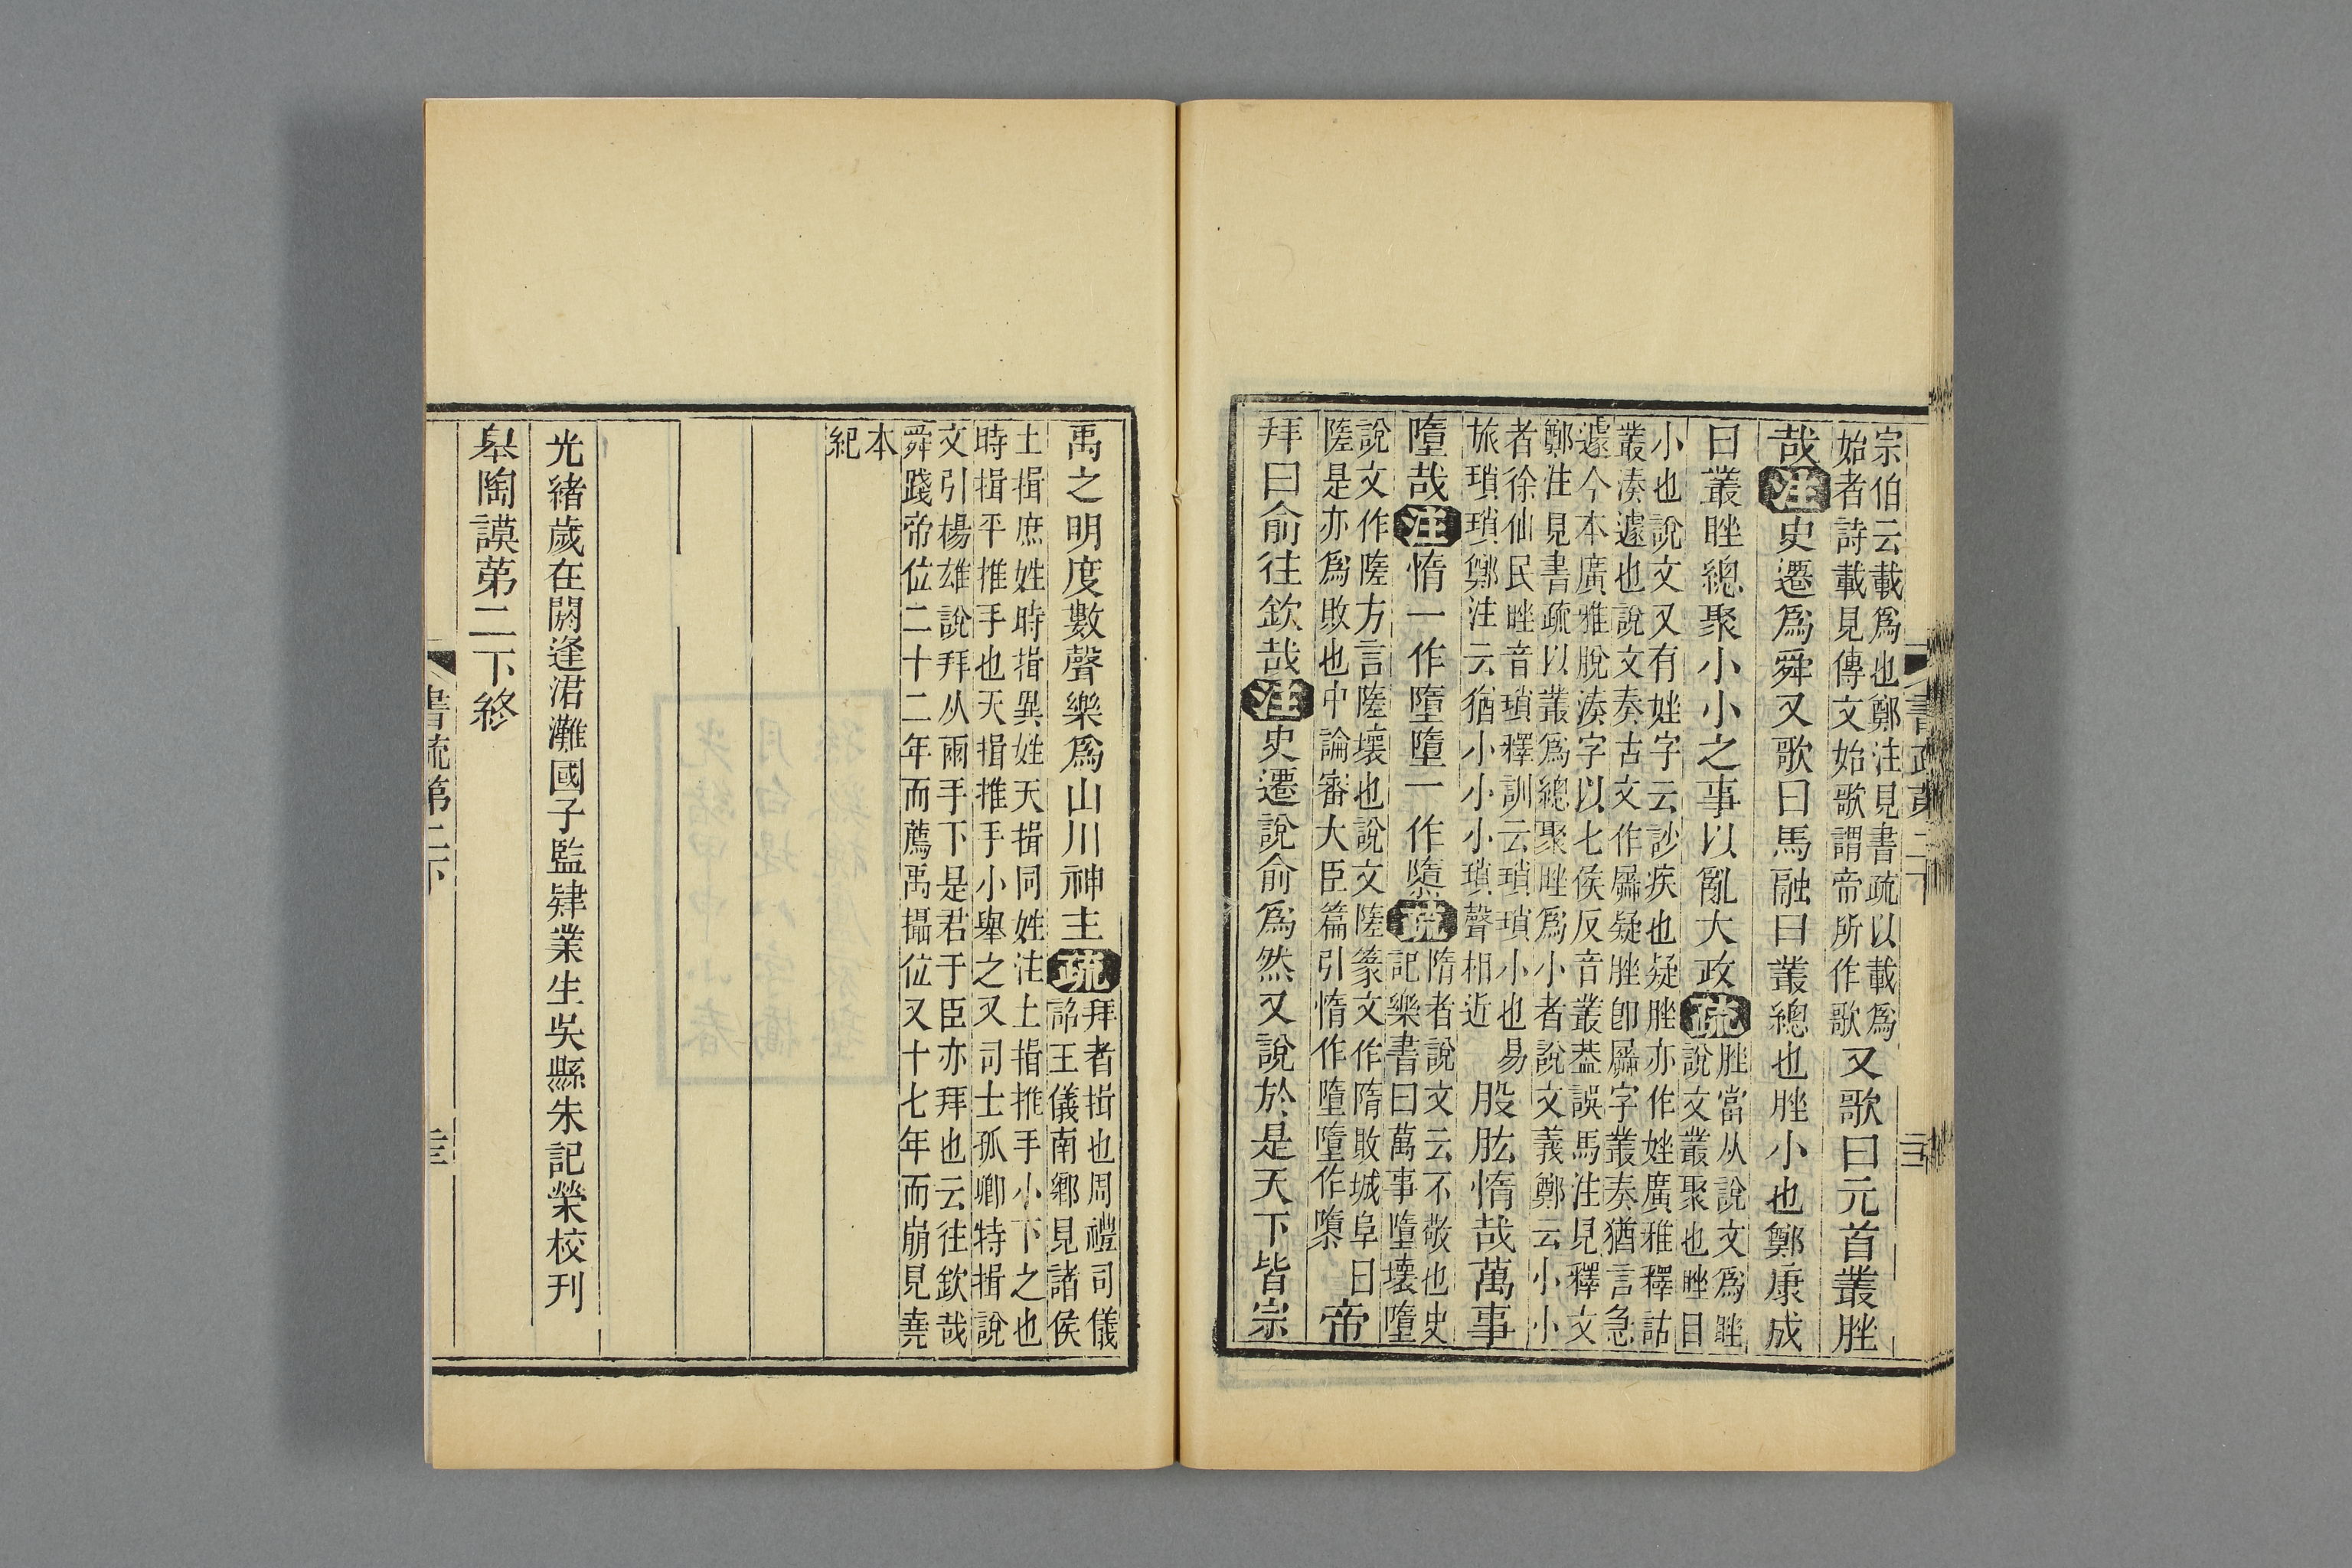 宗伯云載爲也鄭注見書疏以載爲
始者詩載見傳文始歌謂帝所作歌
又歌曰元首叢脞
哉注史遷爲舜又歌曰馬融曰叢總也脞小也鄭康成
曰叢睉總聚小小之事以亂大政疏
脞當从說文爲睉
說文叢聚也睉目
小也說文又有㛗字云訬疾也疑脞亦作㛗廣雅釋詁
叢湊遽也說文奏古文作屚疑脞卽屚字叢奏猶言急
遽今本廣雅脫湊字以七侯反音叢葢誤馬注見釋文
鄭注見書疏以叢爲總聚脞爲小者說文義鄭云小小
者徐仙民睉音瑣釋訓云瑣瑣小也易
旅瑣瑣鄭注云猶小小小瑣聲相近
股肱惰哉萬事
墮哉注惰一作墮墮一作隳疏
惰者說文云不敬也史
記樂書曰萬事墮壞墮
說文作隓方言隓壞也說文隓篆文作隋敗城阜曰
隓是亦爲敗也中論審大臣篇引惰作墮墮作隳
帝
拜曰俞往欽哉注史遷說俞爲然又說於是天下皆宗
禹之明度數聲樂爲山川神主疏
拜者揖也周禮司儀
詔王儀南鄉見諸侯
土揖庶姓時揖異姓天揖同姓注土揖推手小下之也
時揖平推手也天揖推手小舉之又司士孤卿特揖說
文引楊雄說拜从兩手下是君于臣亦拜也云往欽哉
舜踐帝位二十二年而薦禹攝位又十七年而崩見堯
本
紀
光緒歲在閼逢涒灘國子監肄業生吳縣朱記榮校刊
皋陶謨第二下終
書疏第二下